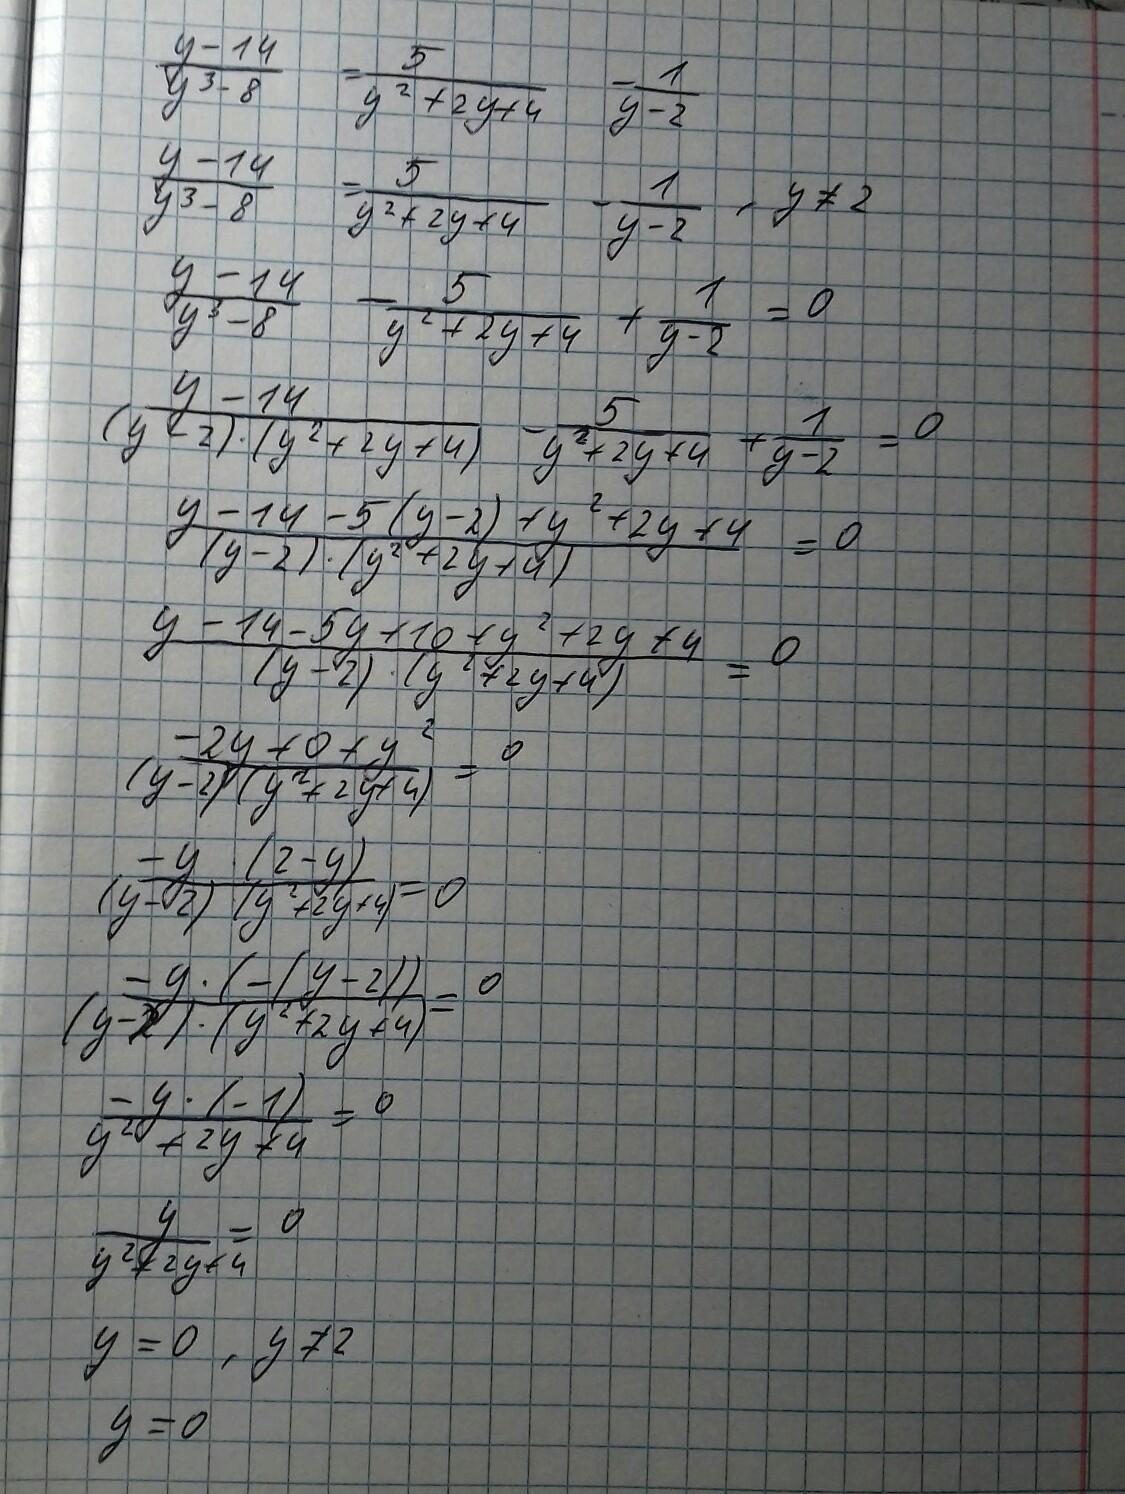 (y-14)/(y³-8) = 5/(y²+2y+4) - 1/(y-2)
(y-14)/(y³-8) = 5/(y²+2y+4) - 1/(y-2), y≠2
(y-14)/(y³-8) - 5/(y²+2y+4) + 1/(y-2) = 0
(y-14)/((y-2)·(y²+2y+4)) - 5/(y²+2y+4) + 1/(y-2) = 0
(y-14-5(y-2)+y²+2y+4)/((y-2)·(y²+2y+4)) = 0
(y-14-5y+10+y²+2y+4)/((y-2)·(y²+2y+4)) = 0
(-2y+0+y²)/((y-2)(y²+2y+4)) = 0
(-y·(2-y))/((y-2)(y²+2y+4)) = 0
(-y·(-(y-2)))/((y-2)·(y²+2y+4)) = 0
(-y·(-1))/(y²+2y+4) = 0
y/(y²+2y+4) = 0
y=0, y≠2
y=0